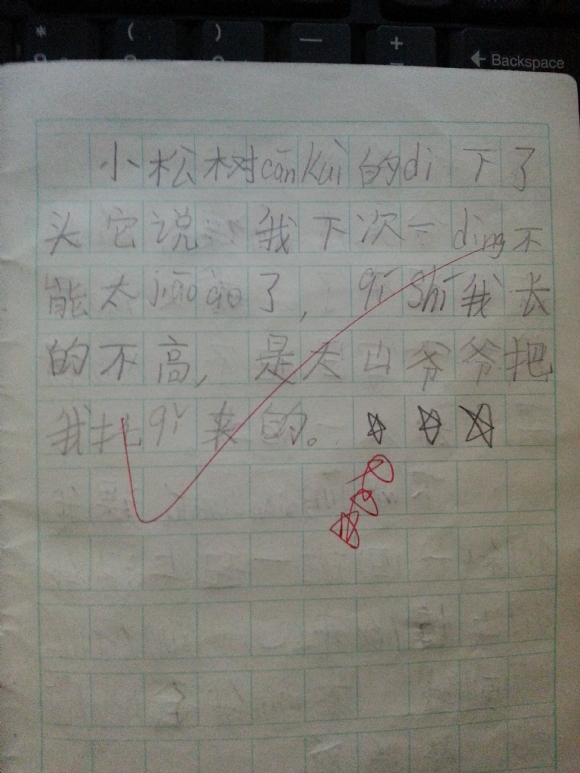 * ( ) — +
Backspace
小松树cānkuì的dī下了
头它说 我下次一dìng不
能太jiāoào了，qí shí我长
的不高，是大山爷爷把
我托qǐ来的。☆☆☆